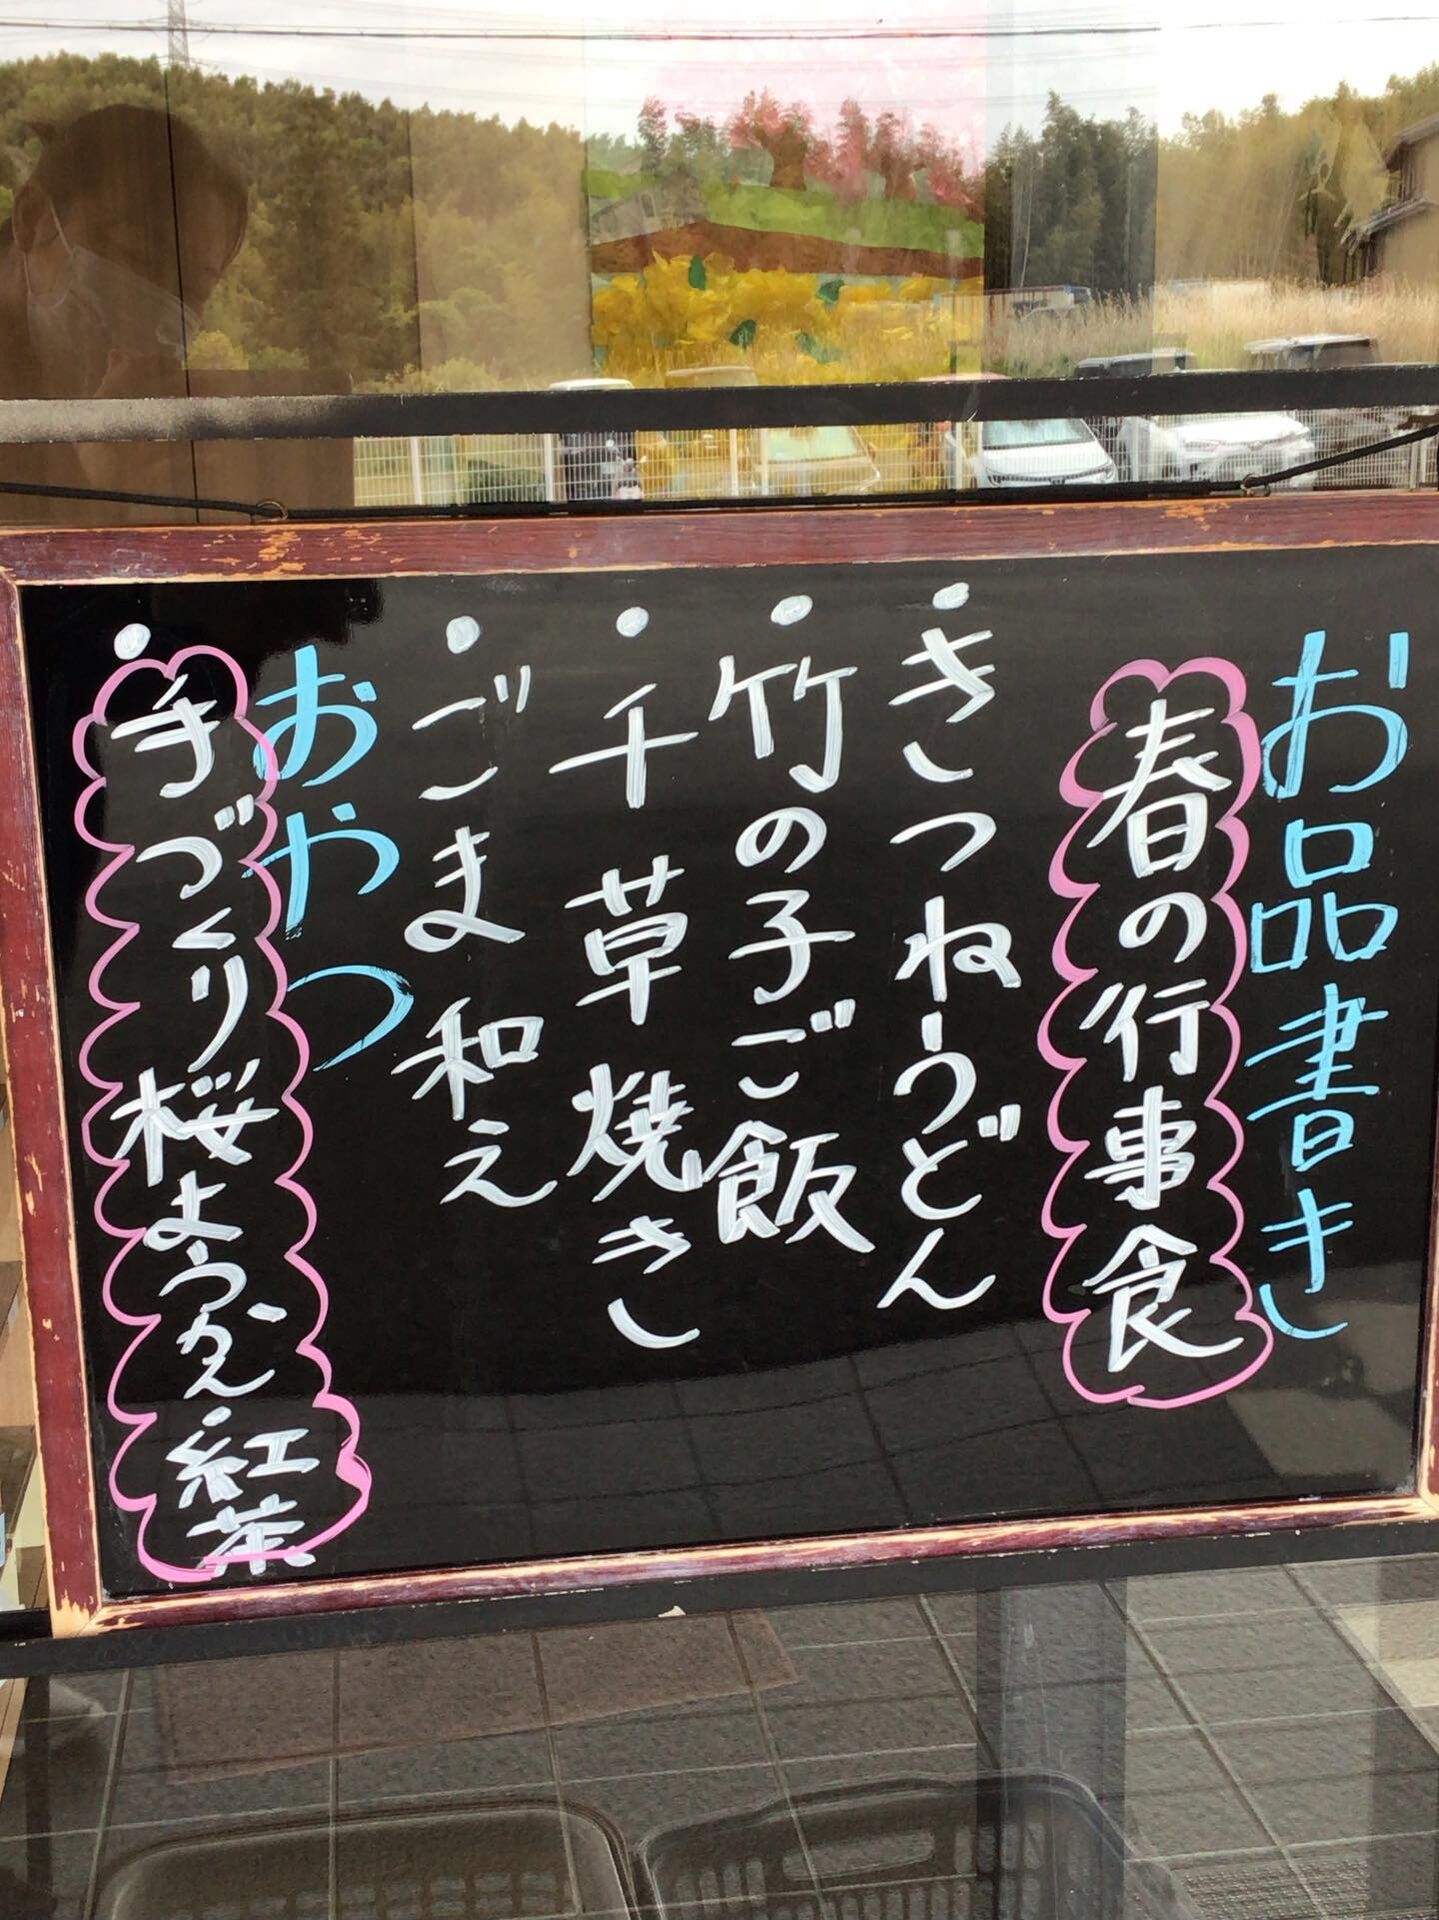 お品書き
春の行事食
・きつねうどん
・竹の子ご飯
・千草焼き
・ごま和え
おやつ
・手づくり桜ようかん・紅茶